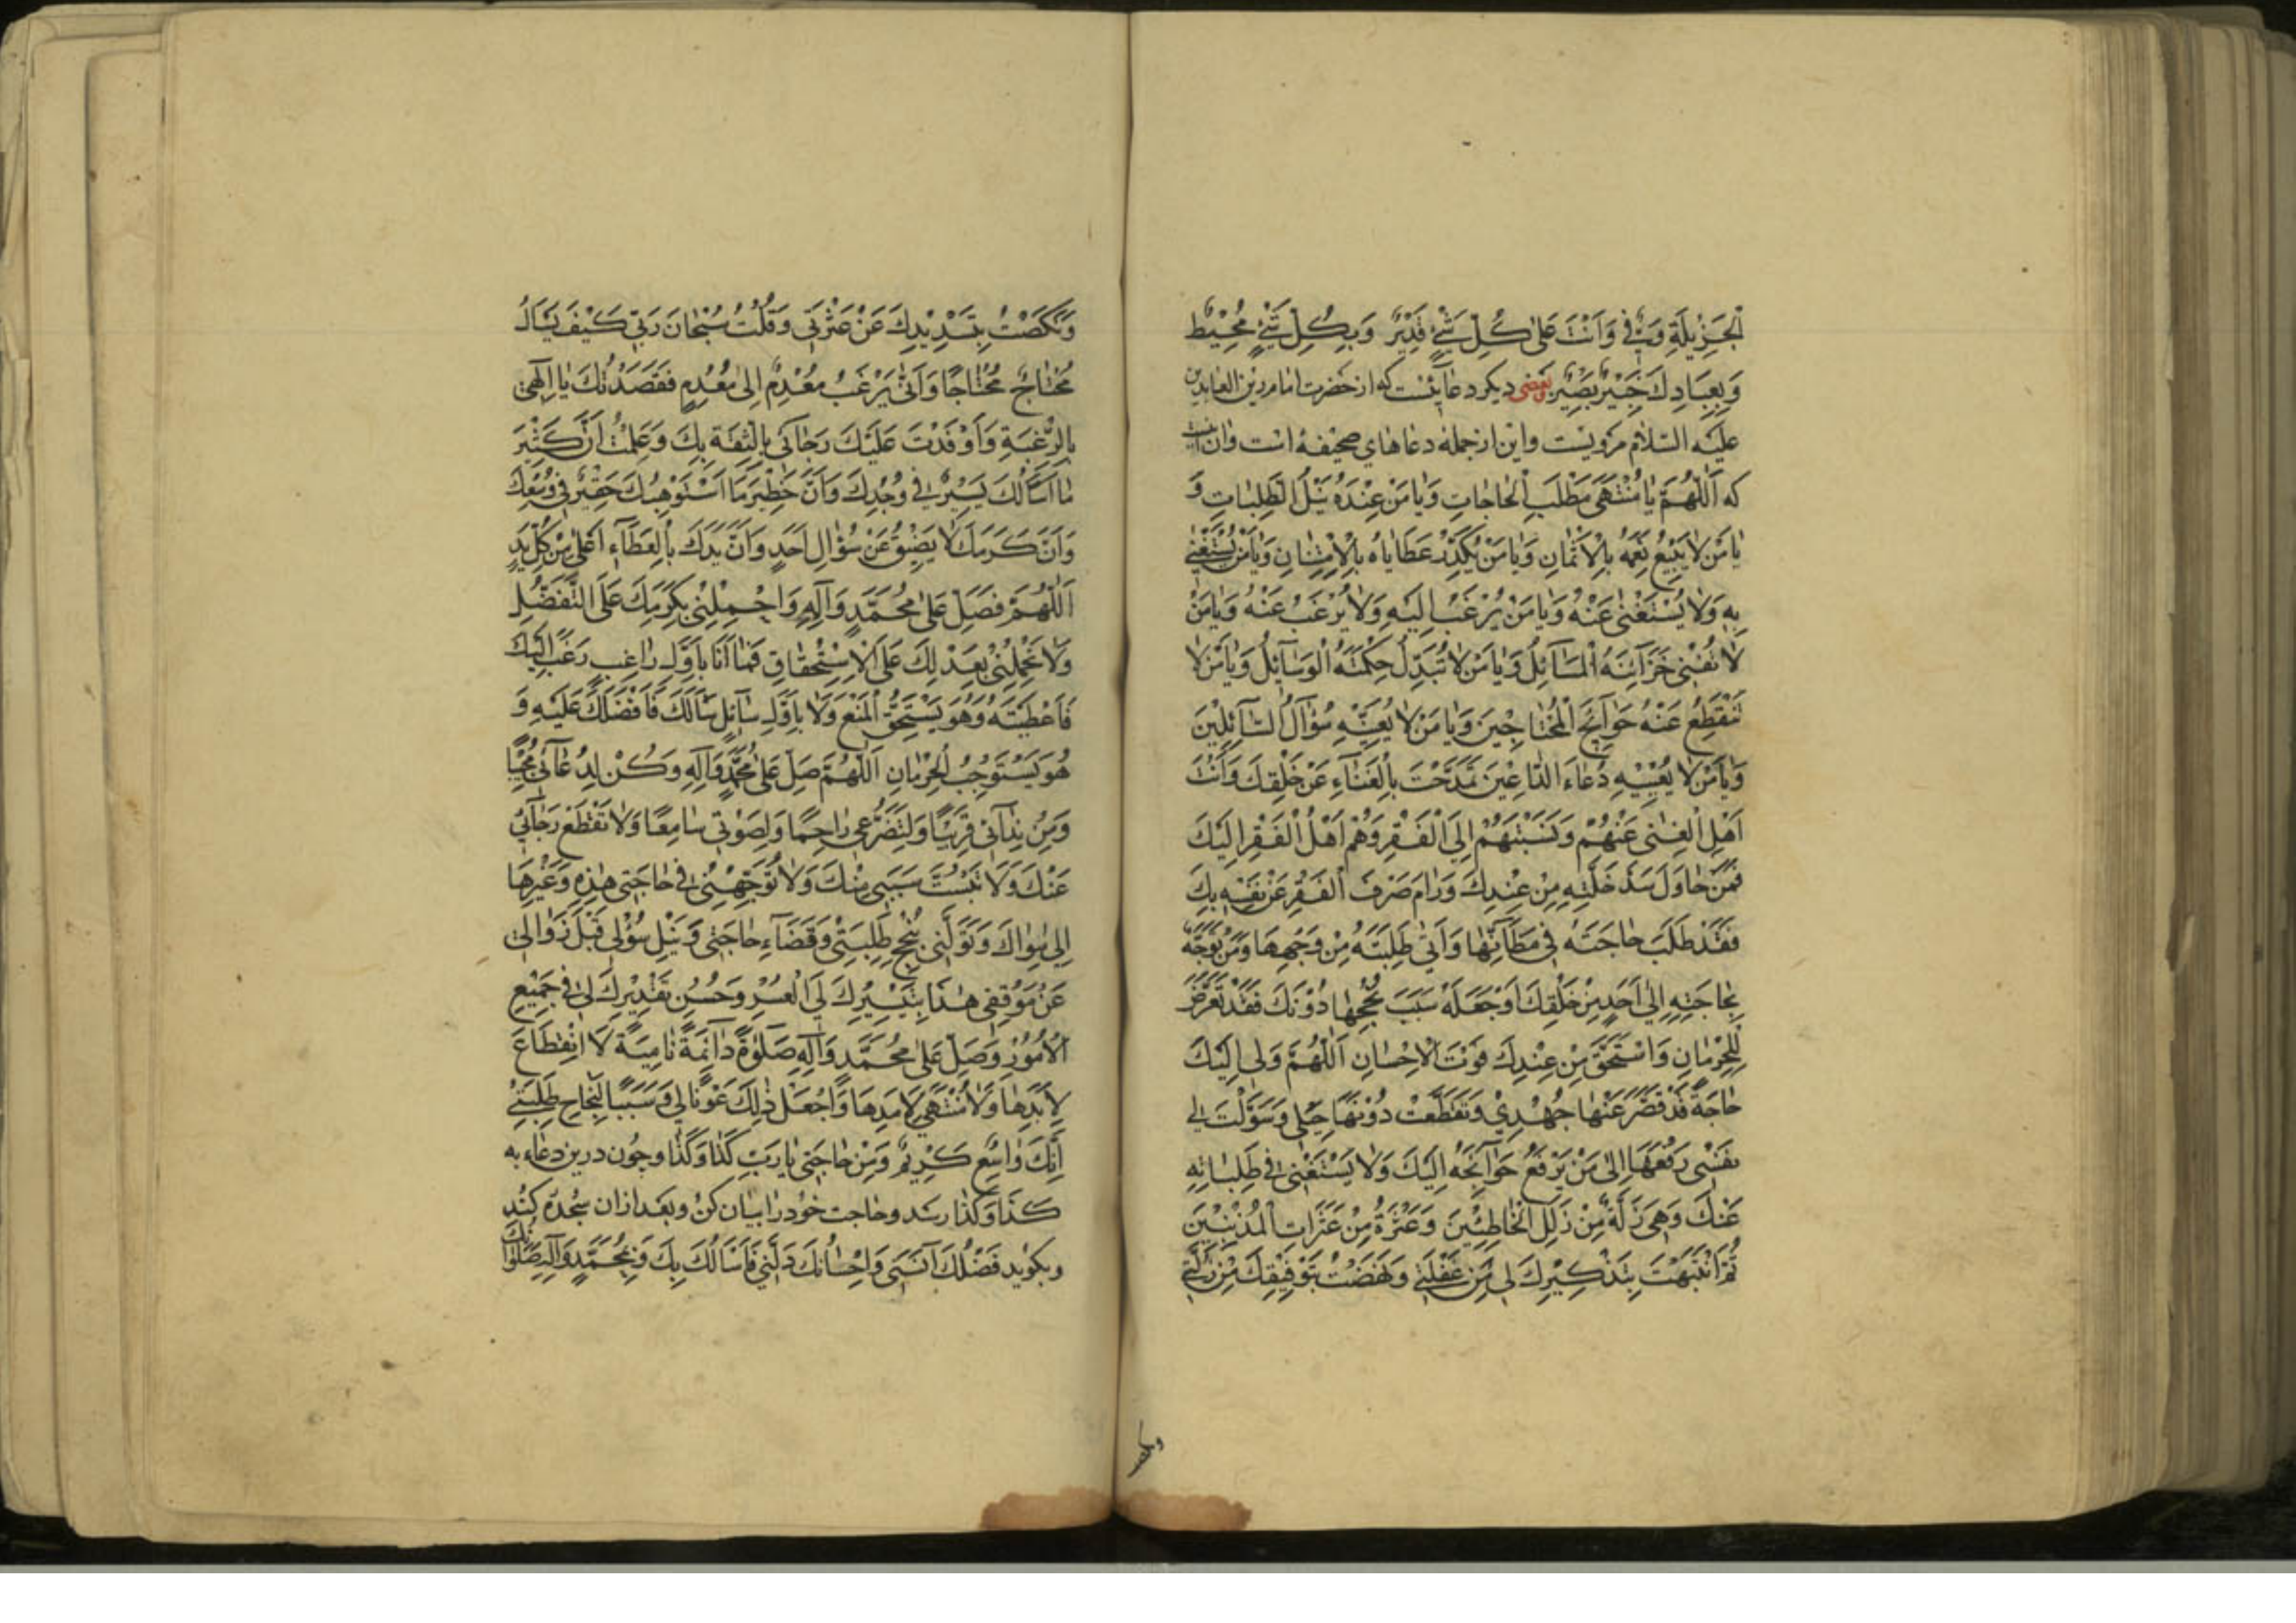 الْجَزِيْلَةِ وَفِيَّ وَاَنْتَ عَلىٰ كُلِّ شَيْءٍ قَدِيْرٌ وَبِكُلِّ شَيْءٍ مُحِيْطٌ
وَبِعِبَادِكَ خَبِيْرٌ بَصِيْرٌ بعضى ديكر دعائيست كه از حضرت امام زين العابدين
عليه السلام مرويست واين از جمله دعاهاي صحيفه است وان اينست
كه اَللّٰهُمَّ يٰا مُنْتَهىٰ مَطْلَبِ الْحٰاجٰاتِ وَيٰا مَنْ عِنْدَهُ نَيْلُ الطَّلِبٰاتِ وَ
يٰا مَنْ لاٰ يَبِيْعُ نِعَمَهُ بِالْاَثْمٰانِ وَيٰا مَنْ يُكَدِّرُ عَطٰايٰاهُ بِالْاِمْتِنٰانِ وَيٰا مَنْ يُسْتَغْنىٰ
بِهِ وَلاٰ يُسْتَغْنىٰ عَنْهُ وَيٰا مَنْ يُرْغَبُ اِلَيْهِ وَلاٰ يُرْغَبُ عَنْهُ وَيٰا مَنْ
لاٰ تُفْنِى خَزٰائِنَهُ الْمَسٰائِلُ وَيٰا مَنْ لاٰ تُبَدِّلُ حِكْمَتَهُ الْوَسٰائِلُ وَيٰا مَنْ لاٰ
تَنْقَطِعُ عَنْهُ حَوٰائِجُ الْمُحْتٰاجِيْنَ وَيٰا مَنْ لاٰ يُعَنِّيْهِ سُؤٰالُ السّٰائِلِيْنَ
وَيٰا مَنْ لاٰ يُعَنِّيْهِ دُعٰاءُ الدّٰاعِيْنَ تَمَدَّحْتَ بِالْغَنٰاءِ عَنْ خَلْقِكَ وَاَنْتَ
اَهْلُ الْغِنىٰ عَنْهُمْ وَنَسَبْتَهُمْ اِلَى الْفَقْرِ وَهُمْ اَهْلُ الْفَقْرِ اِلَيْكَ
فَمَنْ حٰاوَلَ سَدَّ خَلَّتِهِ مِنْ عِنْدِكَ وَرٰامَ صَرْفَ الْفَقْرِ عَنْ نَفْسِهِ بِكَ
فَقَدْ طَلَبَ حٰاجَتَهُ فِى مَظٰانِّهٰا وَاَتىٰ طَلِبَتَهُ مِنْ وَجْهِهٰا وَمَنْ تَوَجَّهَ
بِحٰاجَتِهِ اِلىٰ اَحَدٍ مِنْ خَلْقِكَ اَوْ جَعَلَهُ سَبَبَ نُجْحِهٰا دُوْنَكَ فَقَدْ تَعَرَّضَ
لِلْحِرْمٰانِ وَاسْتَحَقَّ مِنْ عِنْدِكَ فَوْتَ الْاِحْسٰانِ اَللّٰهُمَّ وَلِى اِلَيْكَ
حٰاجَةٌ قَدْ قَصَّرَ عَنْهٰا جُهْدِيْ وَتَقَطَّعَتْ دُوْنَهٰا حِيَلِى وَسَوَّلَتْ لِى
نَفْسِى رَفْعَهٰا اِلىٰ مَنْ يَرْفَعُ حَوٰائِجَهُ اِلَيْكَ وَلاٰ يَسْتَغْنِى فِى طَلِبٰاتِهِ
عَنْكَ وَهِىَ زَلَّةٌ مِنْ زَلَلِ الْخٰاطِئِيْنَ وَعَثْرَةٌ مِنْ عَثَرٰاتِ الْمُذْنِبِيْنَ
ثُمَّ انْتَبَهْتُ بِتَذْكِيْرِكَ لِى مِنْ غَفْلَتِى وَنَهَضْتُ بِتَوْفِيْقِكَ مِنْ زَلَّتِى
وَنَكَصْتُ بِتَسْدِيْدِكَ عَنْ عَثْرَتِى وَقُلْتُ سُبْحٰانَ رَبِّى كَيْفَ يَسْأَلُ
مُحْتٰاجٌ مُحْتٰاجًا وَاَنّىٰ يَرْغَبُ مُعْدِمٌ اِلىٰ مُعْدِمٍ فَقَصَدْتُكَ يٰا اِلٰهِى
بِالرَّغْبَةِ وَاَوْفَدْتُ عَلَيْكَ رَجٰائِى بِالثِّقَةِ بِكَ وَعَلِمْتُ اَنَّ كَثِيْرَ
مٰا اَسْأَلُكَ يَسِيْرٌ فِى وُجْدِكَ وَاَنَّ خَطِيْرَ مٰا اَسْتَوْهِبُكَ حَقِيْرٌ فِى وُسْعِكَ
وَاَنَّ كَرَمَكَ لاٰ يَضِيْقُ عَنْ سُؤٰالِ اَحَدٍ وَاَنَّ يَدَكَ بِالْعَطٰاءِ اَعْلىٰ مِنْ كُلِّ يَدٍ
اَللّٰهُمَّ فَصَلِّ عَلىٰ مُحَمَّدٍ وَاٰلِهِ وَاحْمِلْنِى بِكَرَمِكَ عَلَى التَّفَضُّلِ
وَلاٰ تَحْمِلْنِى بِعَدْلِكَ عَلَى الْاِسْتِحْقٰاقِ فَمٰا اَنَا بِاَوَّلِ رٰاغِبٍ رَغِبَ اِلَيْكَ
فَاَعْطَيْتَهُ وَهُوَ يَسْتَحِقُّ الْمَنْعَ وَلاٰ بِاَوَّلِ سٰائِلٍ سَأَلَكَ فَاَفْضَلْتَ عَلَيْهِ وَ
هُوَ يَسْتَوْجِبُ الْحِرْمٰانَ اَللّٰهُمَّ صَلِّ عَلىٰ مُحَمَّدٍ وَاٰلِهِ وَكُنْ لِدُعٰائِى مُجِيْبًا
وَمِنْ نِدٰائِى قَرِيْبًا وَلِتَضَرُّعِى رٰاحِمًا وَلِصَوْتِى سٰامِعًا وَلاٰ تَقْطَعْ رَجٰائِى
عَنْكَ وَلاٰ تَبُتَّ سَبَبِى مِنْكَ وَلاٰ تُوَجِّهْنِى فِى حٰاجَتِى هٰذِهِ وَغَيْرِهٰا
اِلىٰ سِوٰاكَ وَتَوَلَّنِى بِنُجْحِ طَلِبَتِى وَقَضٰاءِ حٰاجَتِى وَنَيْلِ سُؤْلِى قَبْلَ زَوٰالِى
عَنْ مَوْقِفِى هٰذٰا بِتَيْسِيْرِكَ لِىَ الْعُسْرَ وَحُسْنِ تَقْدِيْرِكَ لِى فِى جَمِيْعِ
الْاُمُوْرِ وَصَلِّ عَلىٰ مُحَمَّدٍ وَاٰلِهِ صَلٰوةً دٰائِمَةً نٰامِيَةً لاَ انْقِطٰاعَ
لِاَبَدِهٰا وَلاٰ مُنْتَهىٰ لِاَمَدِهٰا وَاجْعَلْ ذٰلِكَ عَوْنًا لِى وَسَبَبًا لِنَجٰاحِ طَلِبَتِى
اِنَّكَ وٰاسِعٌ كَرِيْمٌ وَمِنْ حٰاجَتِى يٰا رَبِّ كَذٰا وَكَذٰا وچون درين دعاء به
كَذٰا وَكَذٰا رسد وحاجت خود را بيان كن وبعد ازان سجده كند
وبكويد فَضْلُكَ اٰنَسَنِى وَاِحْسٰانُكَ دَلَّنِى فَاَسْأَلُكَ بِكَ وَبِمُحَمَّدٍ وَاٰلِهِ صَلَوٰاتُكَ
ونكصت